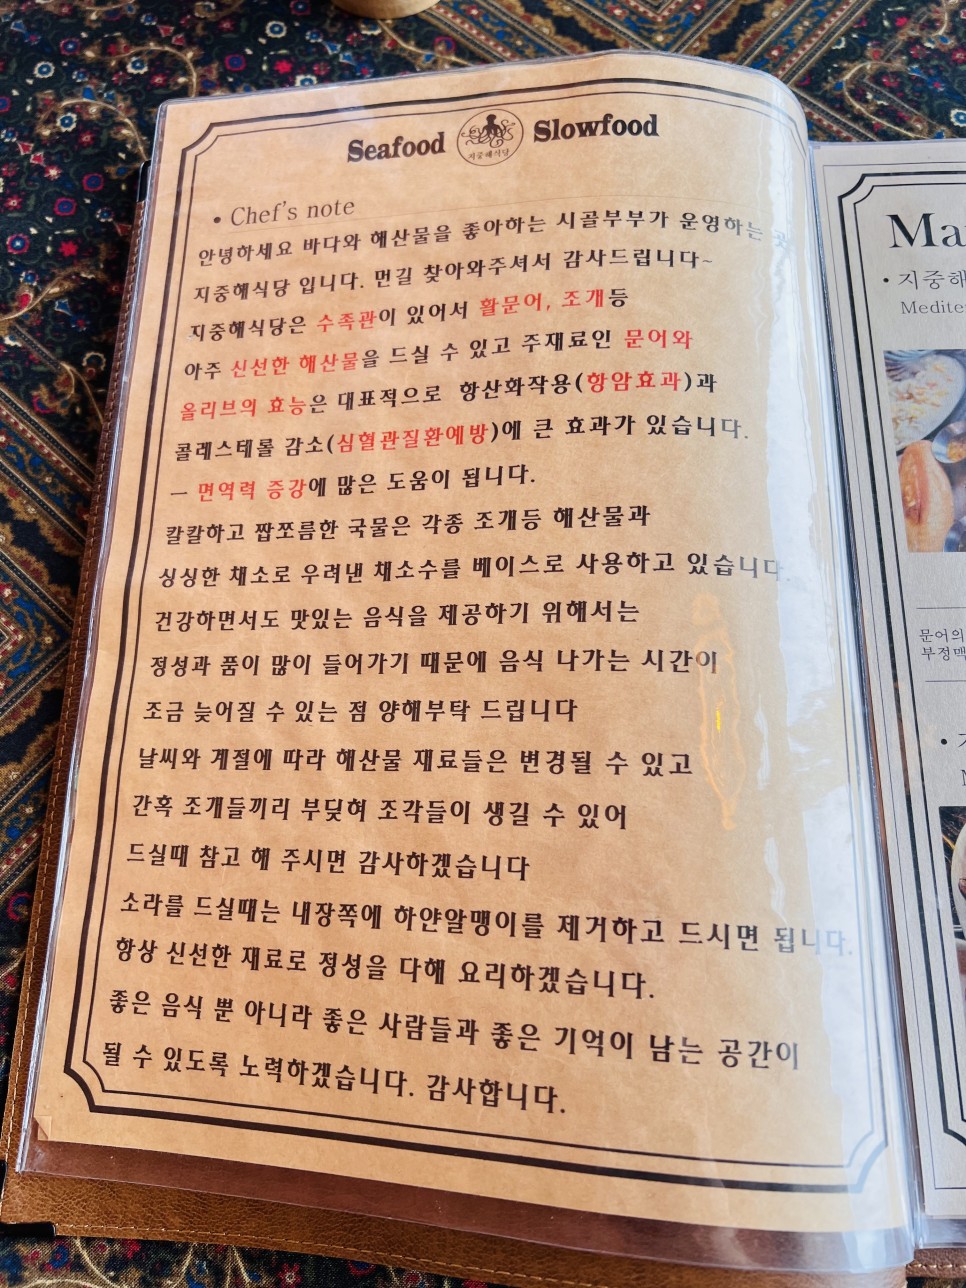 Seafood 지중해식당 Slowfood
• Chef's note
안녕하세요 바다와 해산물을 좋아하는 시골부부가 운영하는 곳
지중해식당 입니다. 먼길 찾아와주셔서 감사드립니다~
지중해식당은 수족관이 있어서 활문어, 조개등
아주 신선한 해산물을 드실 수 있고 주재료인 문어와
올리브의 효능은 대표적으로 항산화작용(항암효과)과
콜레스테롤 감소(심혈관질환예방)에 큰 효과가 있습니다.
ㅡ 면역력 증강에 많은 도움이 됩니다.
칼칼하고 짭쪼름한 국물은 각종 조개등 해산물과
싱싱한 채소로 우려낸 채소수를 베이스로 사용하고 있습니다.
건강하면서도 맛있는 음식을 제공하기 위해서는
정성과 품이 많이 들어가기 때문에 음식 나가는 시간이
조금 늦어질 수 있는 점 양해부탁 드립니다
날씨와 계절에 따라 해산물 재료들은 변경될 수 있고
간혹 조개들끼리 부딪혀 조각들이 생길 수 있어
드실때 참고 해 주시면 감사하겠습니다
소라를 드실때는 내장쪽에 하얀알맹이를 제거하고 드시면 됩니다.
항상 신선한 재료로 정성을 다해 요리하겠습니다.
좋은 음식 뿐 아니라 좋은 사람들과 좋은 기억이 남는 공간이
될 수 있도록 노력하겠습니다. 감사합니다.
• 지중해
문어의
부정맥